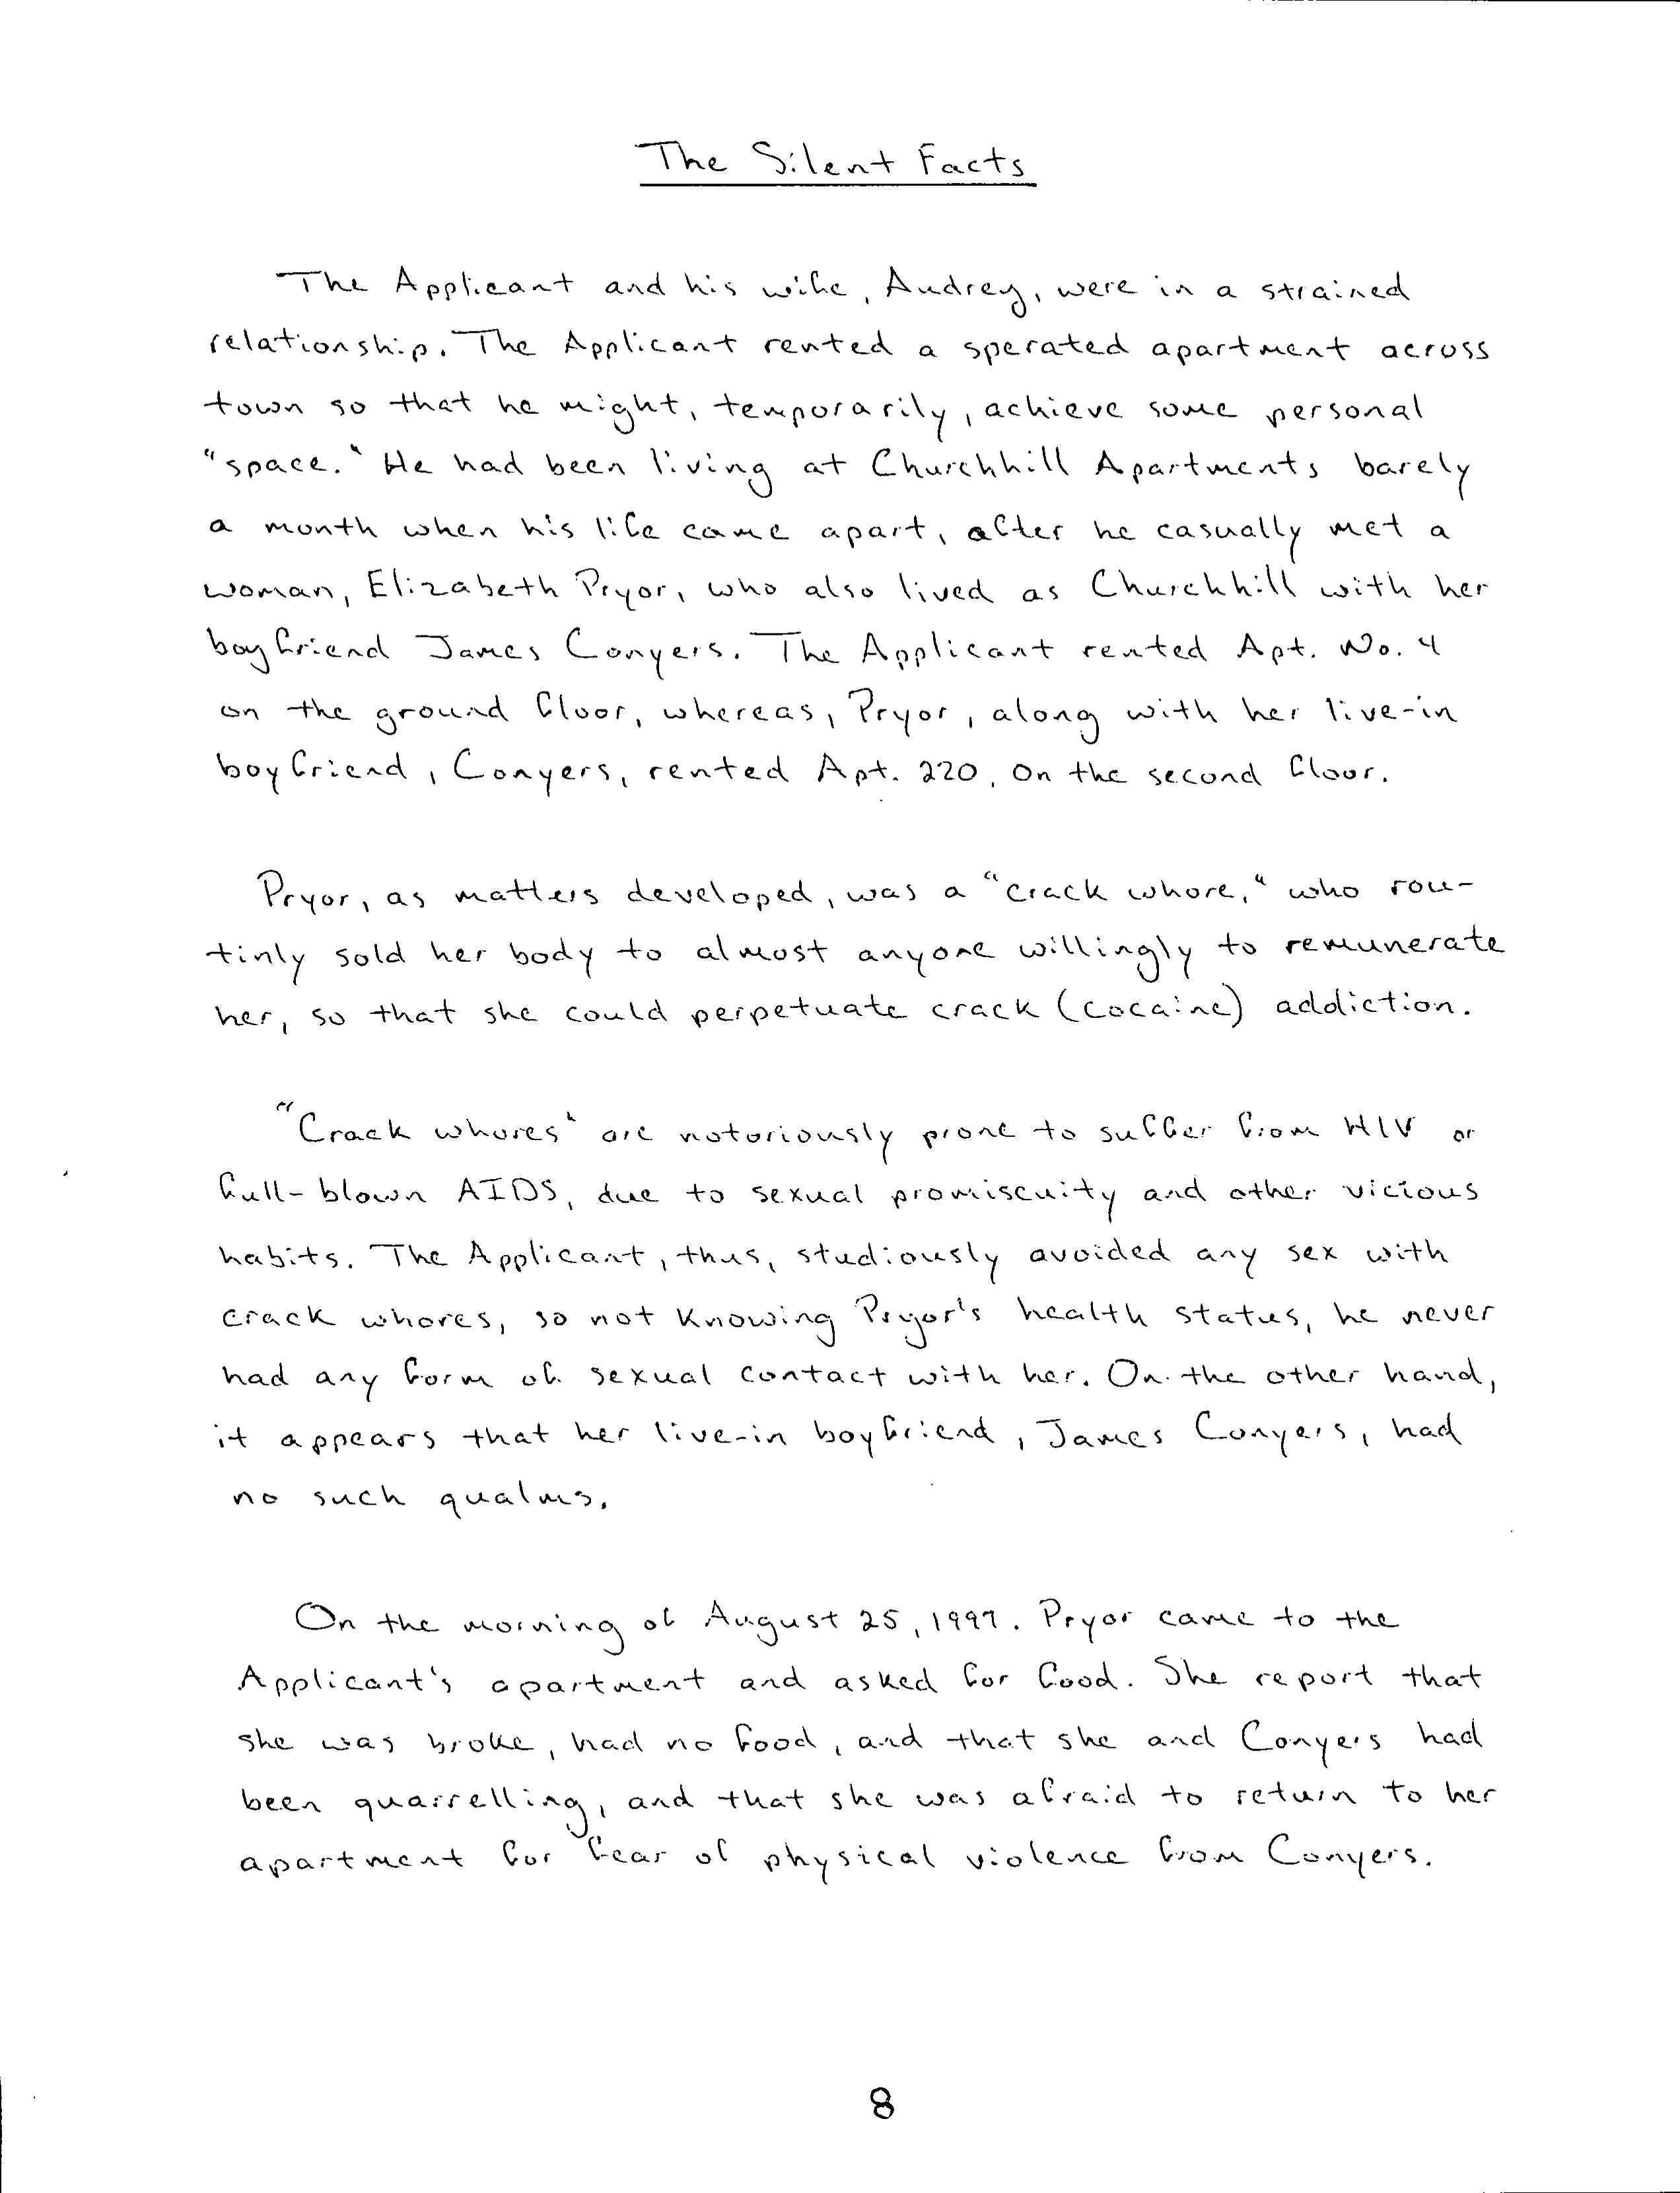 The Silent Facts
The Applicant and his wife, Audrey, were in a strained
relationship. The Applicant rented a sperated apartment across
town so that he might, temporarily, achieve some personal
"space." He had been living at Churchhill Apartments barely
a month when his life came apart, after he casually met a
woman, Elizabeth Pryor, who also lived as Churchhill with her
boyfriend James Conyers. The Applicant rented Apt. No. 4
on the ground floor, whereas, Pryor, along with her live-in
boyfriend, Conyers, rented Apt. 220, on the second floor.
Pryor, as matters developed, was a "crack whore," who rou-
tinly sold her body to almost anyone willingly to remunerate
her, so that she could perpetuate crack (cocaine) addiction.
"Crack whores" are notoriously prone to suffer from HIV or
full-blown AIDS, due to sexual promiscuity and other vicious
habits. The Applicant, thus, studiously avoided any sex with
crack whores, so not knowing Pryor's health status, he never
had any form of sexual contact with her. On the other hand,
it appears that her live-in boyfriend, James Conyers, had
no such qualms.
On the morning of August 25, 1997. Pryor came to the
Applicant's apartment and asked for food. She report that
she was broke, had no food, and that she and Conyers had
been quarrelling, and that she was afraid to return to her
apartment for fear of physical violence from Conyers.
8